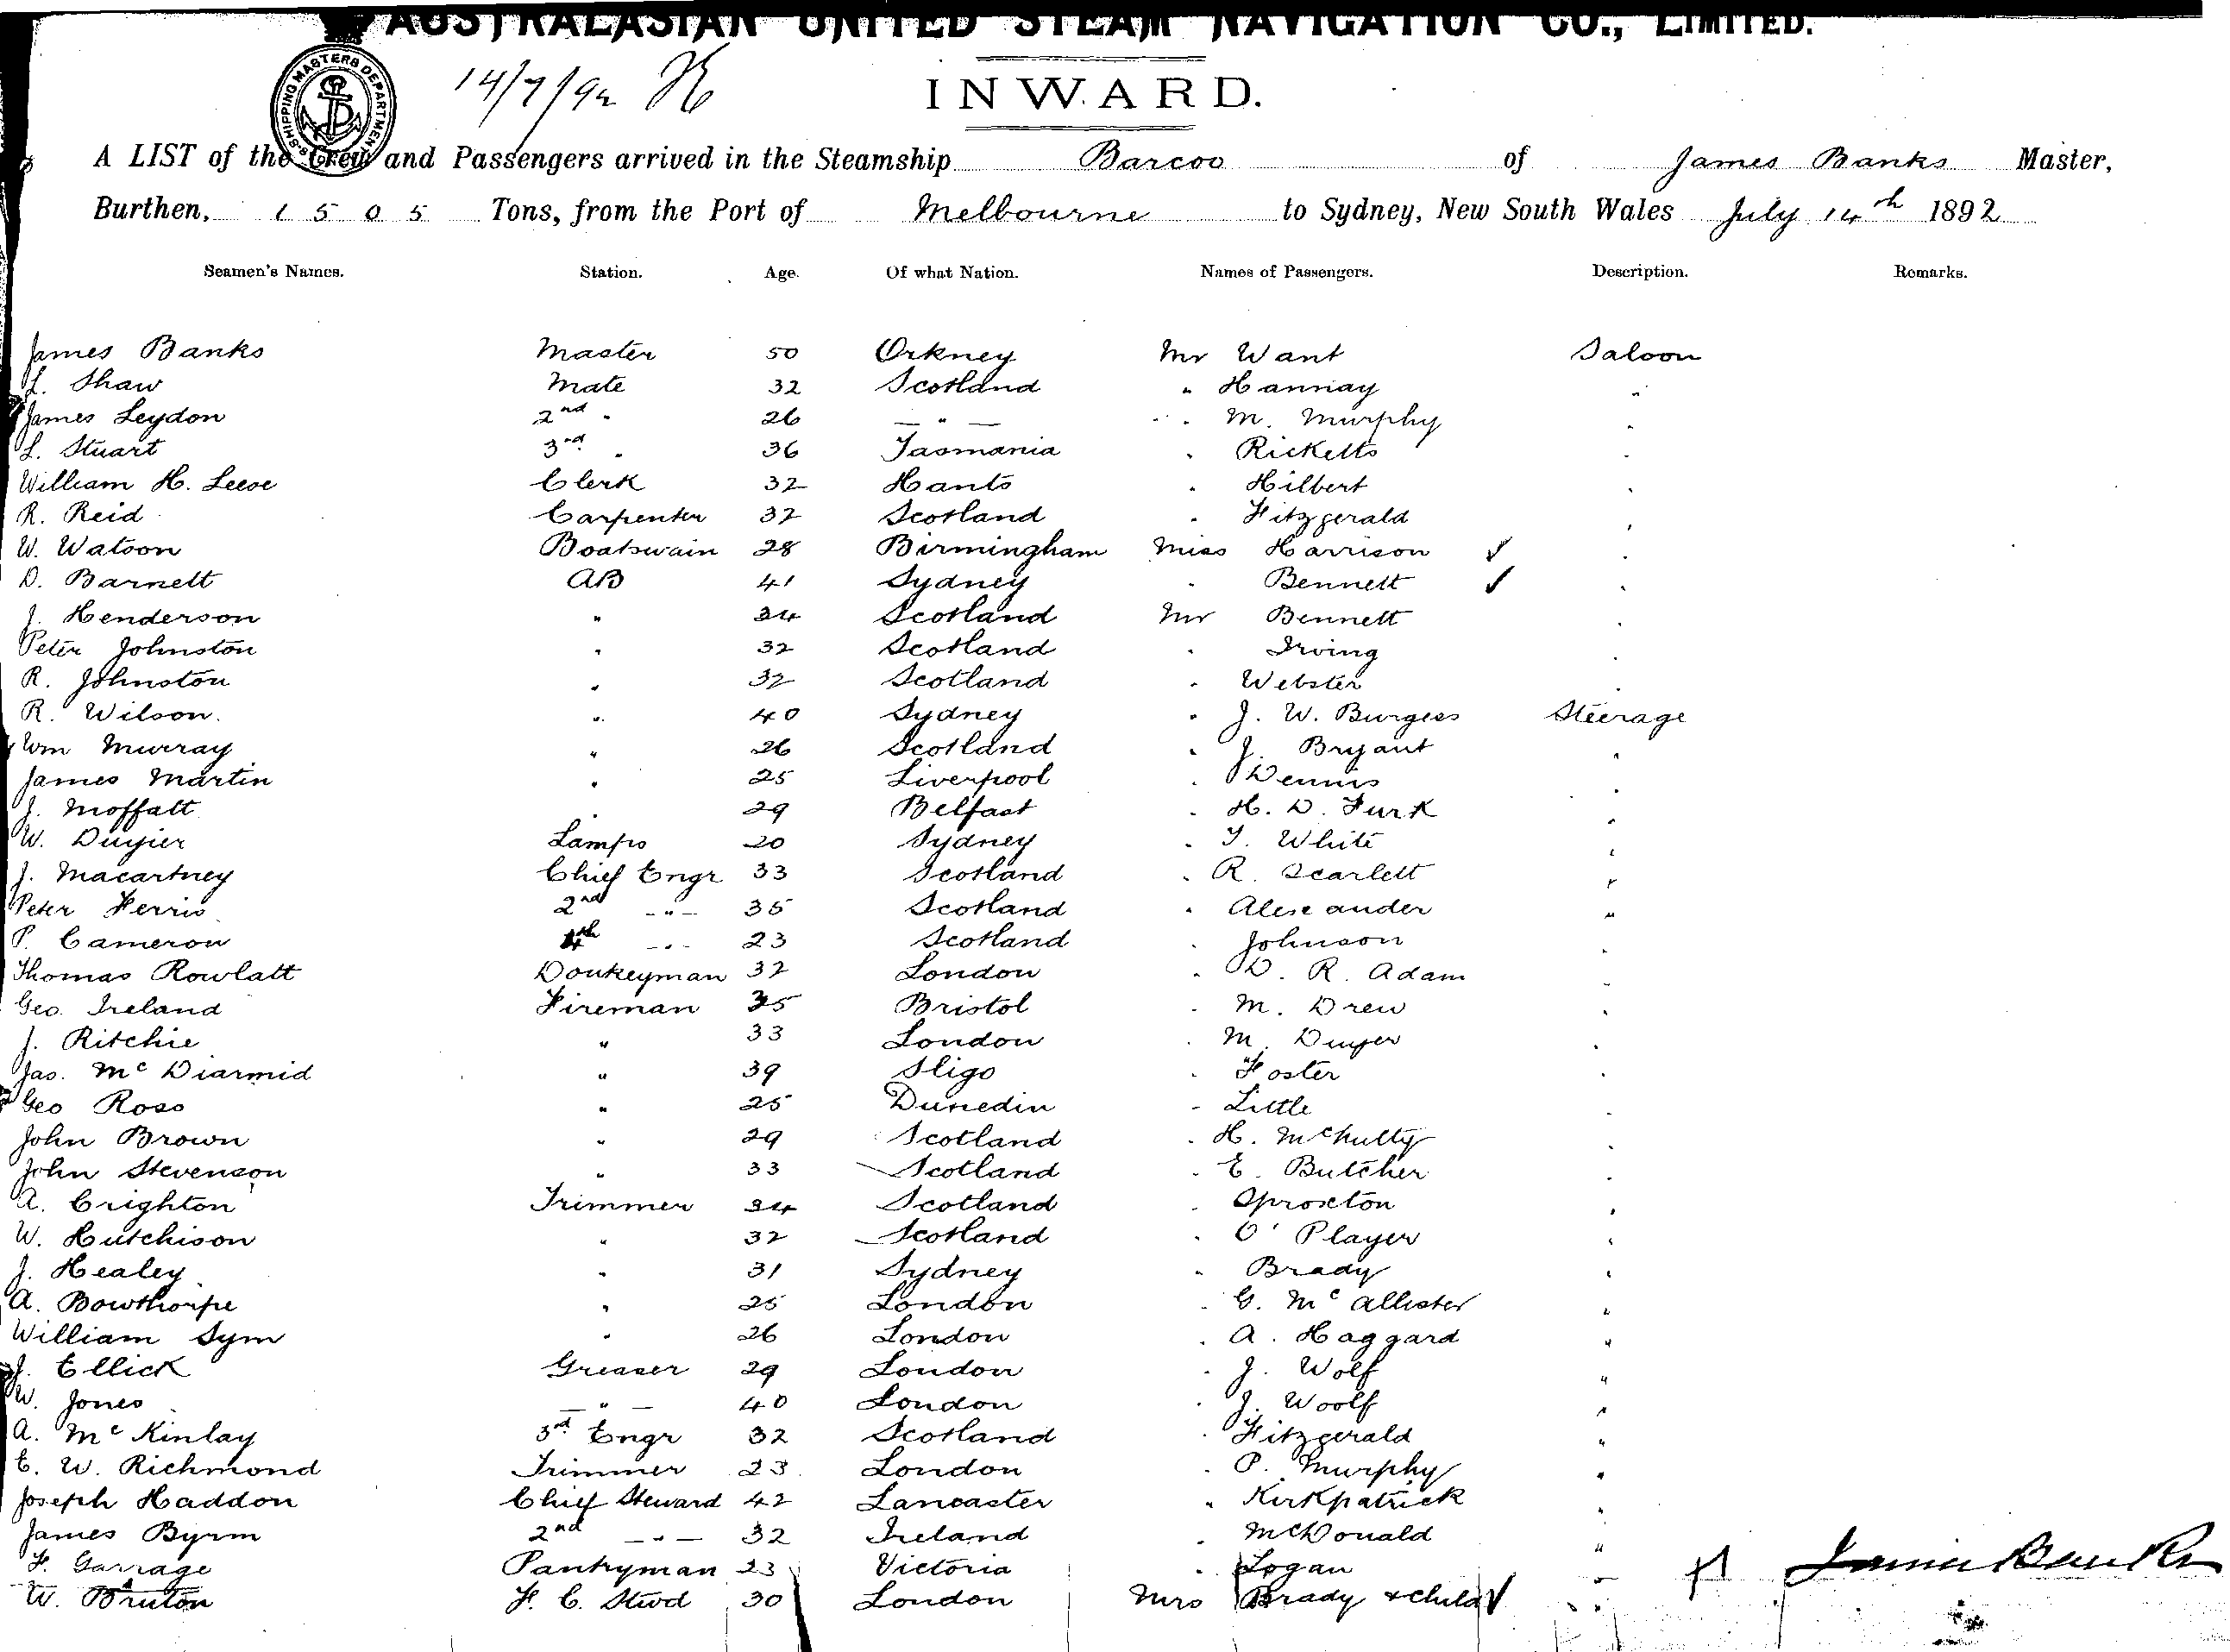 AUSTRALASIAN UNITED STEAM NAVIGATION CO., LIMITED.
SHIPPING MASTERS DEPARTMENT
14/7/92
INWARD.
A LIST of the Crew and Passengers arrived in the Steamship Barcoo of James Banks Master,
Burthen, 1505 Tons, from the Port of Melbourne to Sydney, New South Wales July 14th 1892
Seamen's Names. Station. Age. Of what Nation. Names of Passengers. Description. Remarks.
James Banks Master 50 Orkney Mr Want Saloon
L. Shaw Mate 32 Scotland " Hannay "
James Leydon 2nd " 26 — " — " M. Murphy "
L. Stuart 3rd " 36 Tasmania " Ricketts "
William H. Leese Clerk 32 Hants " Hilbert "
R. Reid Carpenter 32 Scotland " Fitzgerald "
W. Watson Boatswain 28 Birmingham Miss Harrison ✓ "
D. Barnett AB 41 Sydney " Bennett ✓ "
J. Henderson " 34 Scotland Mr Bennett "
Peter Johnston " 32 Scotland " Irving "
R. Johnston " 32 Scotland " Webster "
R. Wilson. " 40 Sydney " J. W. Burgess Steerage
Wm Murray " 26 Scotland " J. Bryant "
James Martin " 25 Liverpool " Dennis "
J. Moffatt " 29 Belfast " H. D. Furk "
W. Lamps 20 Sydney " T. White "
J. Macartney Chief Engr 33 Scotland " R. Scarlett "
Peter Ferris 2nd — " — 35 Scotland " Alexander "
P. Cameron 4th — " — 23 Scotland " Johnson "
Thomas Rowlatt Donkeyman 32 London " D. R. Adam "
Geo. Ireland Fireman 35 Bristol " M. Drew "
J. Ritchie " 33 London " M. Dwyer "
Jas. McDiarmid " 39 Sligo " Foster "
Geo Ross " 25 Dunedin " Little "
John Brown " 29 Scotland " H. McNulty "
John Stevenson " 33 Scotland " E. Butcher "
A. Crighton Trimmer 34 Scotland " Sproxton "
W. Hutchison " 32 Scotland " O' Player "
J. Healey " 31 Sydney " Brady "
A. Bowthorpe " 25 London " G. McAllister "
William Sym " 26 London " A. Haggard "
J. Ellick Greaser 29 London " J. Wolf "
W. Jones — " — 40 London " J. Woolf "
A. McKinlay 3rd Engr 32 Scotland " Fitzgerald "
E. W. Richmond Trimmer 23 London " P. Murphy "
Joseph Haddon Chief Steward 42 Lancaster " Kirkpatrick "
James Byrm 2nd — " — 32 Ireland " McDonald "
F. Garrage Pantryman 23 Victoria " Logan " James Banks
W. Bruton F. C. Stwd 30 London Mrs Brady & child ✓ "